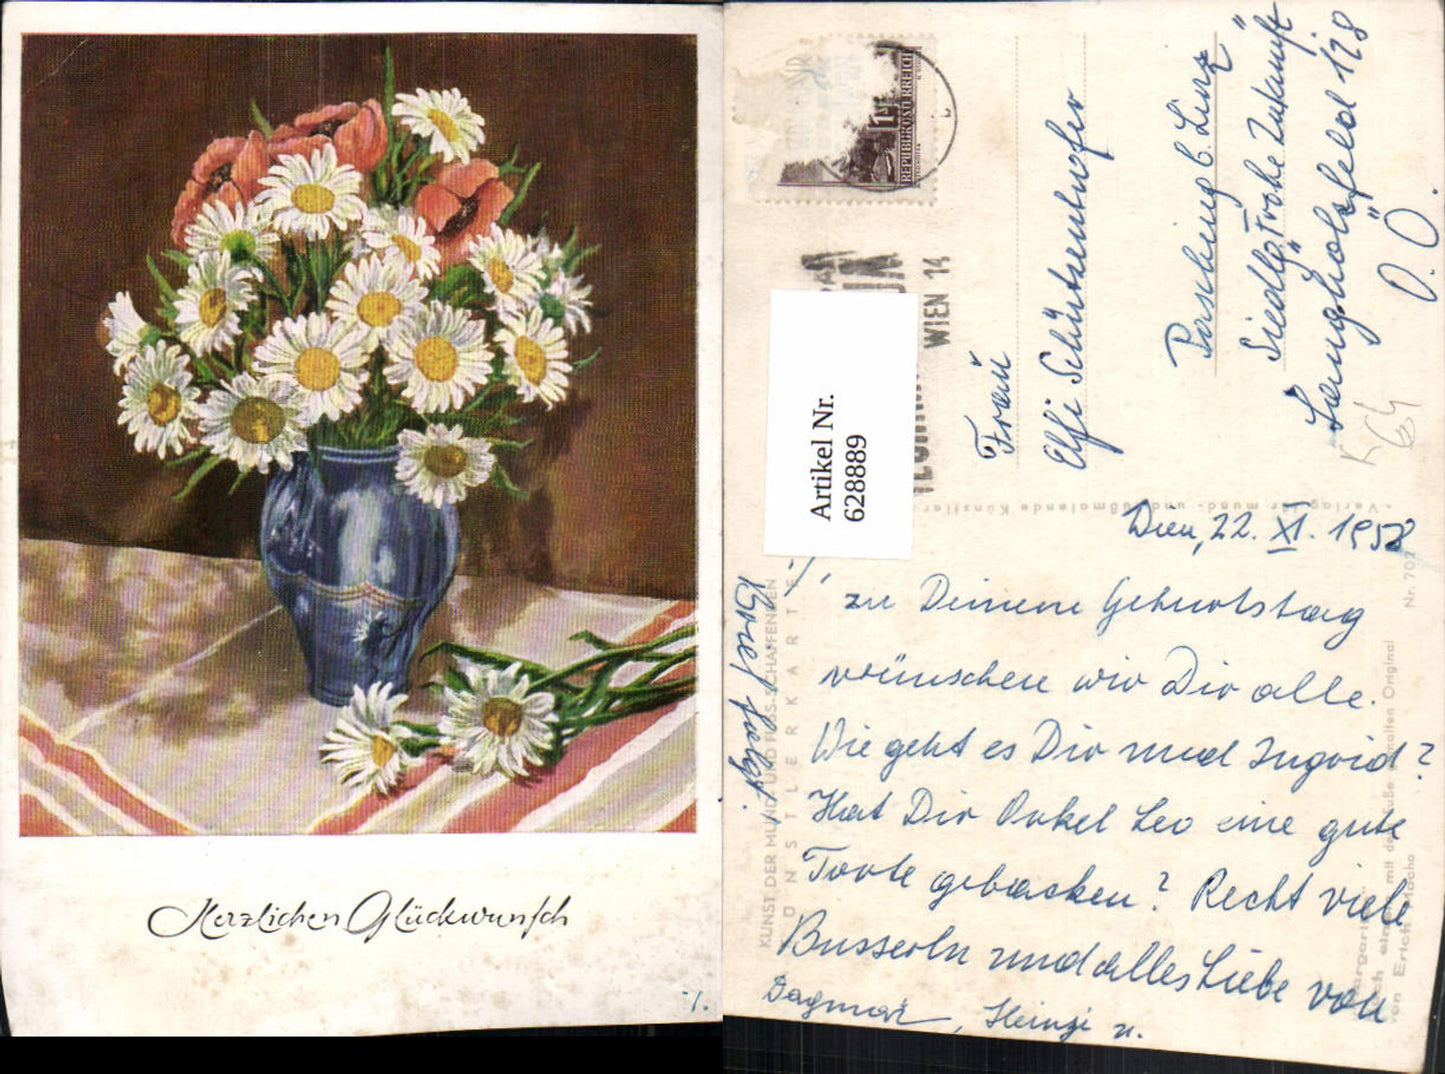 Herzlichen Glückwunsch
REPUBLIK ÖSTERREICH
1 S
WIEN 14
Artikel Nr.
628889
Frau
Elfi Schützenhofer
Pasching b. Linz
Siedlg. "Frohe Zukunft"
Langholzfeld 128
O.Ö.
Verlag für mund- und fußmalende Künstler
Wien, 22. XI. 1958
zu Deinem Geburtstag
wünschen wir Dir alle.
Wie geht es Dir und Ingrid?
Hat Dir Onkel Leo eine gute
Torte gebacken? Recht viele
Busserln und alles Liebe von
Dagmar, Heinzi u.
Brief folgt.
KUNST DER MUND UND FUSS-SCHAFFENDEN
KÜNSTLERKARTE
Nr. 70
nach einem mit dem Fuße gemalten Original
von Erich Macho